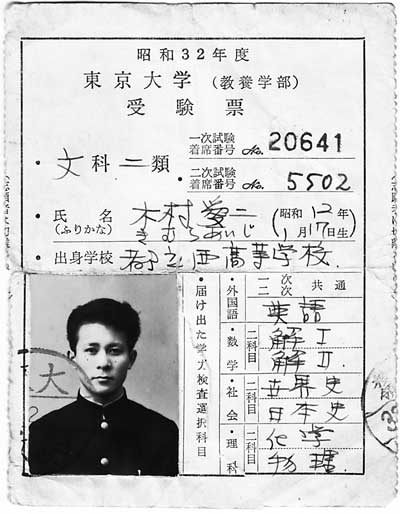 昭和32年度
東京大学(教養学部)
受験票
一次試験
着席番号 No. 20641
・文科二類
二次試験
着席番号 No. 5502
・氏名 木村愛二 (昭和12年
(ふりかな) きむらあいじ 1月17日生)
・出身学校 都立西高等学校.
・届け出た学力検査選択科目
・外国語 一次二次共通 英語
・数学 二科目 解I
解II
・社会 二科目 世界史
日本史
・理科 二科目 化学
物理.
大